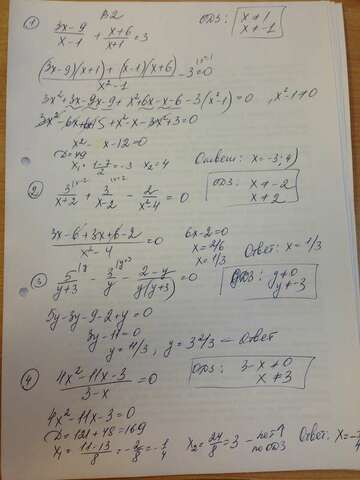 B2
① (3x-9)/(x-1) + (x+6)/(x+1) = 3 ОДЗ: x≠1
x≠-1
((3x-9)(x+1) + (x-1)(x+6))/(x²-1) - 3 = 0
3x²+3x-9x-9+x²+6x-x-6-3(x²-1)=0, x²-1≠0
3x²-6x-15+x²-x-3x²+3=0
x²-x-12=0
D=49
x₁=(1-7)/2=-3 x₂=4 Ответ: x=-3; 4)
② 3/(x+2) + 3/(x-2) - 2/(x²-4) = 0 ОДЗ: x≠-2
x≠2
(3x-6+3x+6-2)/(x²-4) = 0 6x-2=0
x=2/6
x=1/3 Ответ: x=1/3
③ 5/(y+3) - 3/y - (2-y)/(y(y+3)) = 0 ОДЗ: y≠0
y≠-3
5y-3y-9-2+y=0
3y-11=0
y=11/3, y=3 2/3 – Ответ
④ (4x²-11x-3)/(3-x) = 0 ОДЗ: 3-x≠0
x≠3
4x²-11x-3=0
D=121+48=169
x₁=(11-13)/8=-2/8=-1/4 x₂=24/8=3 – нет
по ОДЗ Ответ: x=-1/4